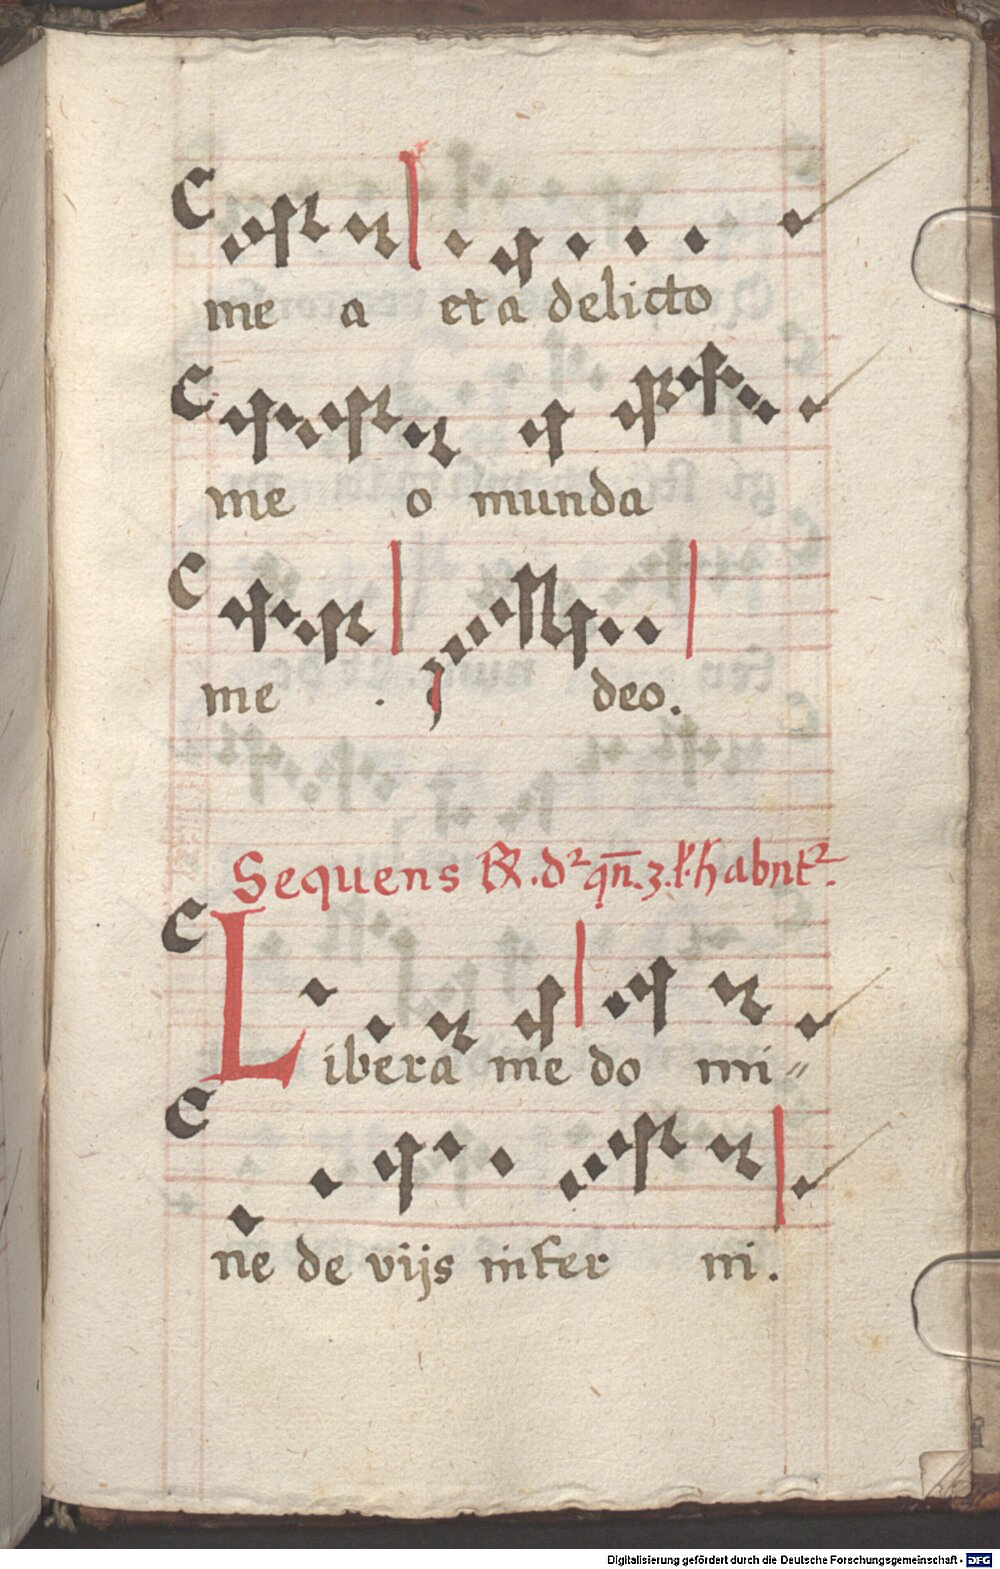 me a et a delicto
me o munda
me . deo.
Sequens ℟. d² qn̄. 3. l. habnt².
Libera me do mi-
ne de vijs infer ni.
Digitalisierung gefördert durch die Deutsche Forschungsgemeinschaft - DFG